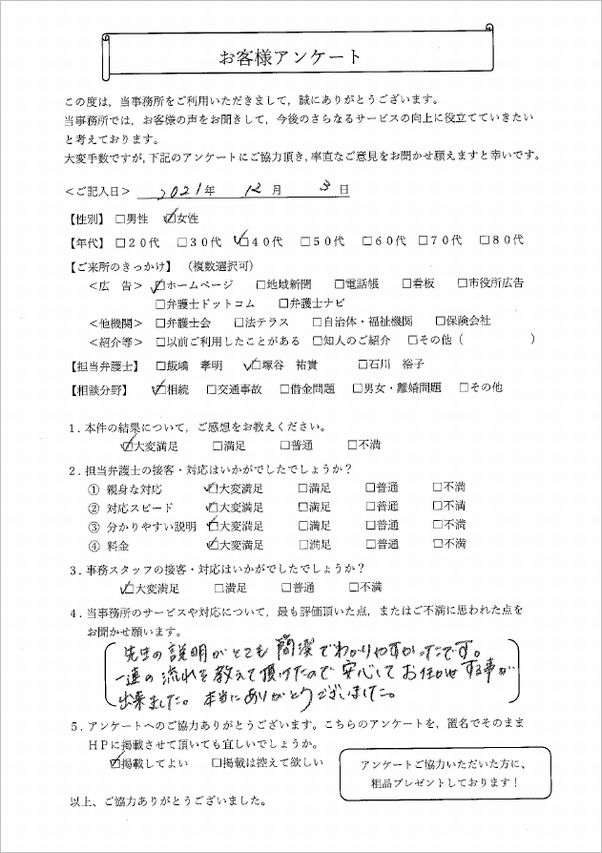 お客様アンケート
この度は，当事務所をご利用いただきまして，誠にありがとうございます。
当事務所では，お客様の声をお聞きして，今後のさらなるサービスの向上に役立てていきたい
と考えております。
大変手数ですが，下記のアンケートにご協力頂き，率直なご意見をお聞かせ願えますと幸いです。
＜ご記入日＞ 2021年 12月 3日
【性別】 □男性 ☑女性
【年代】 □20代 □30代 ☑40代 □50代 □60代 □70代 □80代
【ご来所のきっかけ】（複数選択可）
＜広 告＞ ☑ホームページ □地域新聞 □電話帳 □看板 □市役所広告
□弁護士ドットコム □弁護士ナビ
＜他機関＞ □弁護士会 □法テラス □自治体・福祉機関 □保険会社
＜紹介等＞ □以前ご利用したことがある □知人のご紹介 □その他（ ）
【担当弁護士】 □飯嶋 孝明 ☑塚谷 祐貴 □石川 裕子
【相談分野】 ☑相続 □交通事故 □借金問題 □男女・離婚問題 □その他
1．本件の結果について，ご感想をお教えください。
☑大変満足 □満足 □普通 □不満
2．担当弁護士の接客・対応はいかがでしたでしょうか？
① 親身な対応 ☑大変満足 □満足 □普通 □不満
② 対応スピード ☑大変満足 □満足 □普通 □不満
③ 分かりやすい説明 ☑大変満足 □満足 □普通 □不満
④ 料金 ☑大変満足 □満足 □普通 □不満
3．事務スタッフの接客・対応はいかがでしたでしょうか？
☑大変満足 □満足 □普通 □不満
4．当事務所のサービスや対応について，最も評価頂いた点，またはご不満に思われた点を
お聞かせ願います。
先生の説明がとても簡潔でわかりやすかったです。
一連の流れを教えて頂けたので安心してお任せする事が
出来ました。本当にありがとうございました。
5．アンケートへのご協力ありがとうございます。こちらのアンケートを，匿名でそのまま
HPに掲載させて頂いても宜しいでしょうか。
☑掲載してよい □掲載は控えて欲しい
アンケートご協力いただいた方に、
粗品プレゼントしております！
以上、ご協力ありがとうございました。